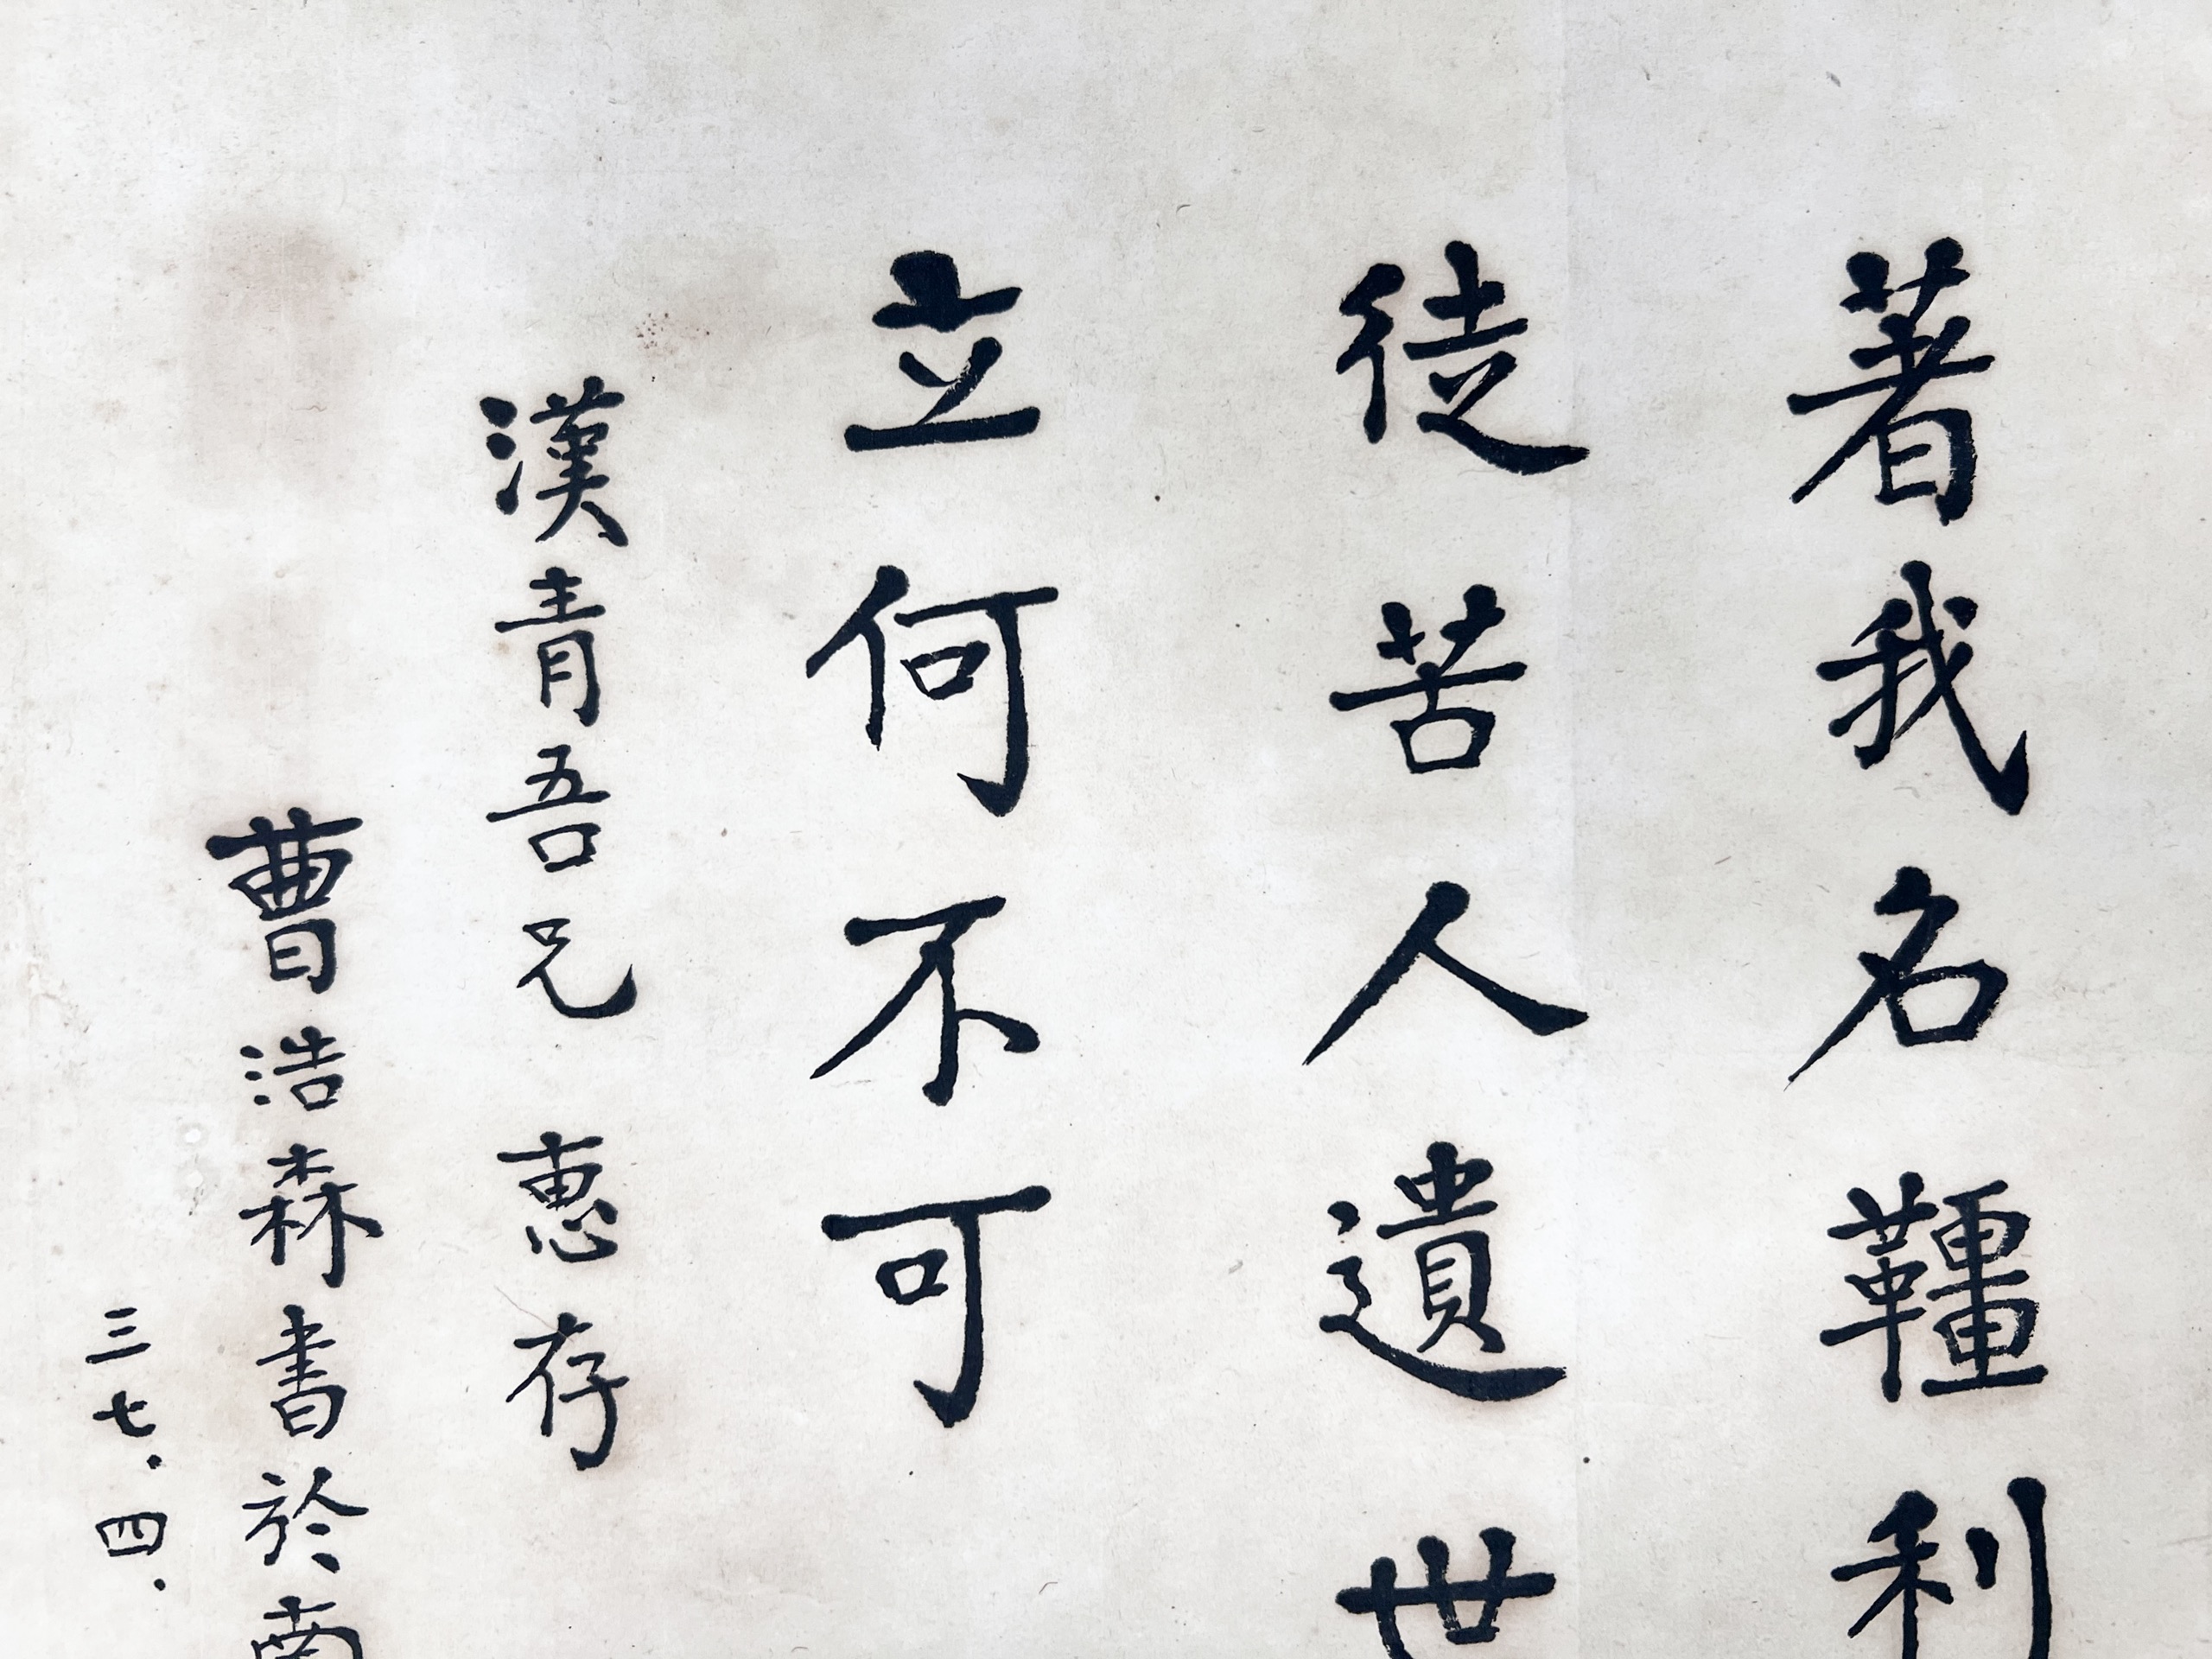 著我名韁利
徒苦人遺世
立何不可
漢青吾兄 惠存
曹浩森書於南
三七.四.